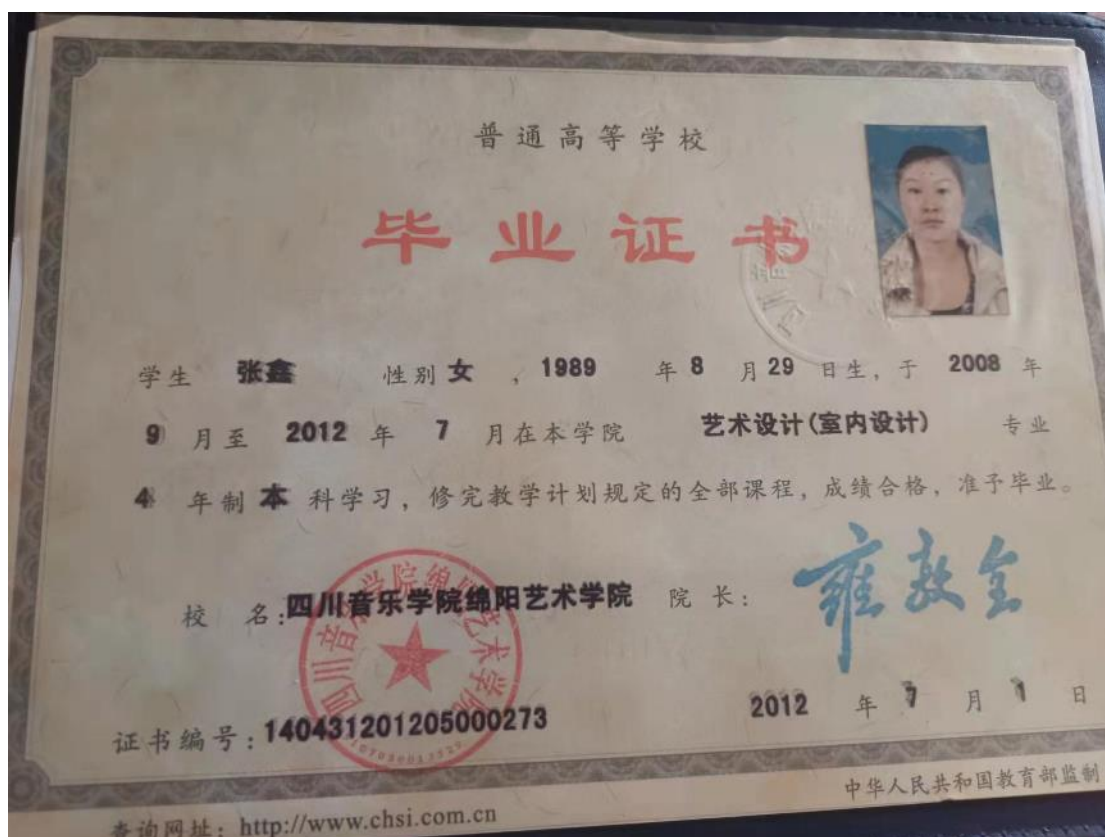 普通高等学校
毕业证书
学生 张鑫 性别 女 , 1989 年 8 月 29 日生, 于 2008 年
9 月至 2012 年 7 月在本学院 艺术设计(室内设计) 专业
4 年制 本 科学习, 修完教学计划规定的全部课程, 成绩合格, 准予毕业。
校 名: 四川音乐学院绵阳艺术学院 院 长: 雍敦全
四川音乐学院绵阳艺术学院
证书编号: 140431201205000273 2012 年 7 月 1 日
中华人民共和国教育部监制
查询网址: http://www.chsi.com.cn